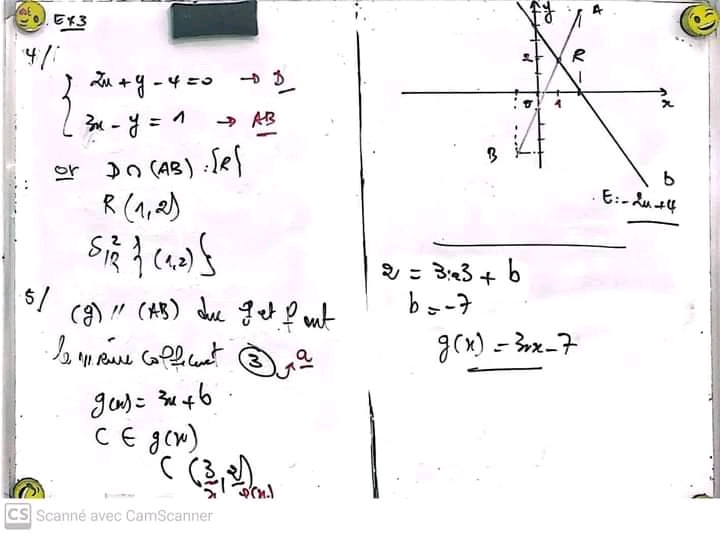 Ex3
4/
2x + y - 4 = 0 → D
3x - y = 1 → AB
or D ∩ (AB) : {R}
R (1,2)
S ℝ² { (1,2) }
5/ (g) // (AB) due g et f ont
le même coefficient 3 → a
g(x) = 3x + b
C ∈ g(x)
C (3, 2)
x
y
A
2
R
0
1
x
B
D
E: -2x+4
2 = 3·3 + b
b = -7
g(x) = 3x - 7
CS Scanné avec CamScanner